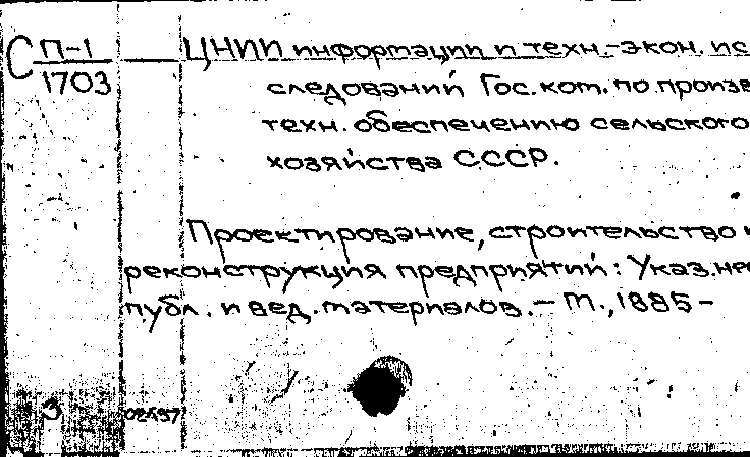 С П-1
1703
ЦНИИ информации и техн.-экон. ис
следований Гос. ком. по произв
техн. обеспечению сельского
хозяйства СССР.
Проектирование, строительство и
реконструкция предприятий: Указ. не
публ. и вед. материалов. — М., 1985 —
3